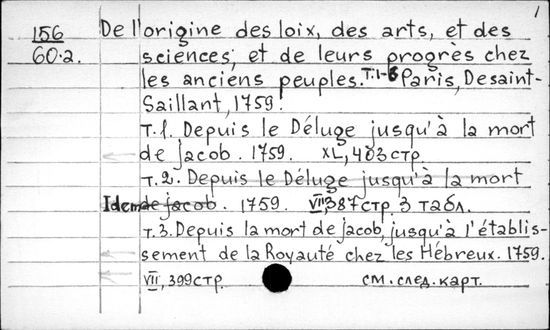 1
156
60.2.
De l'origine des loix, des arts, et des
sciences; et de leurs progrès chez
les anciens peuples. T.1-6 Paris, Desaint-
Saillant, 1759.
т.1. Depuis le Déluge jusqu'à la mort
de Jacob. 1759. XL, 403 стр.
т.2. Depuis le Déluge jusqu'à la mort
Idem de Jacob. 1759. VII, 387 стр. 3 табл.
т.3. Depuis la mort de Jacob, jusqu'à l'établis-
sement de la Royauté chez les Hébreux. 1759.
VII, 399 стр. см. след. карт.